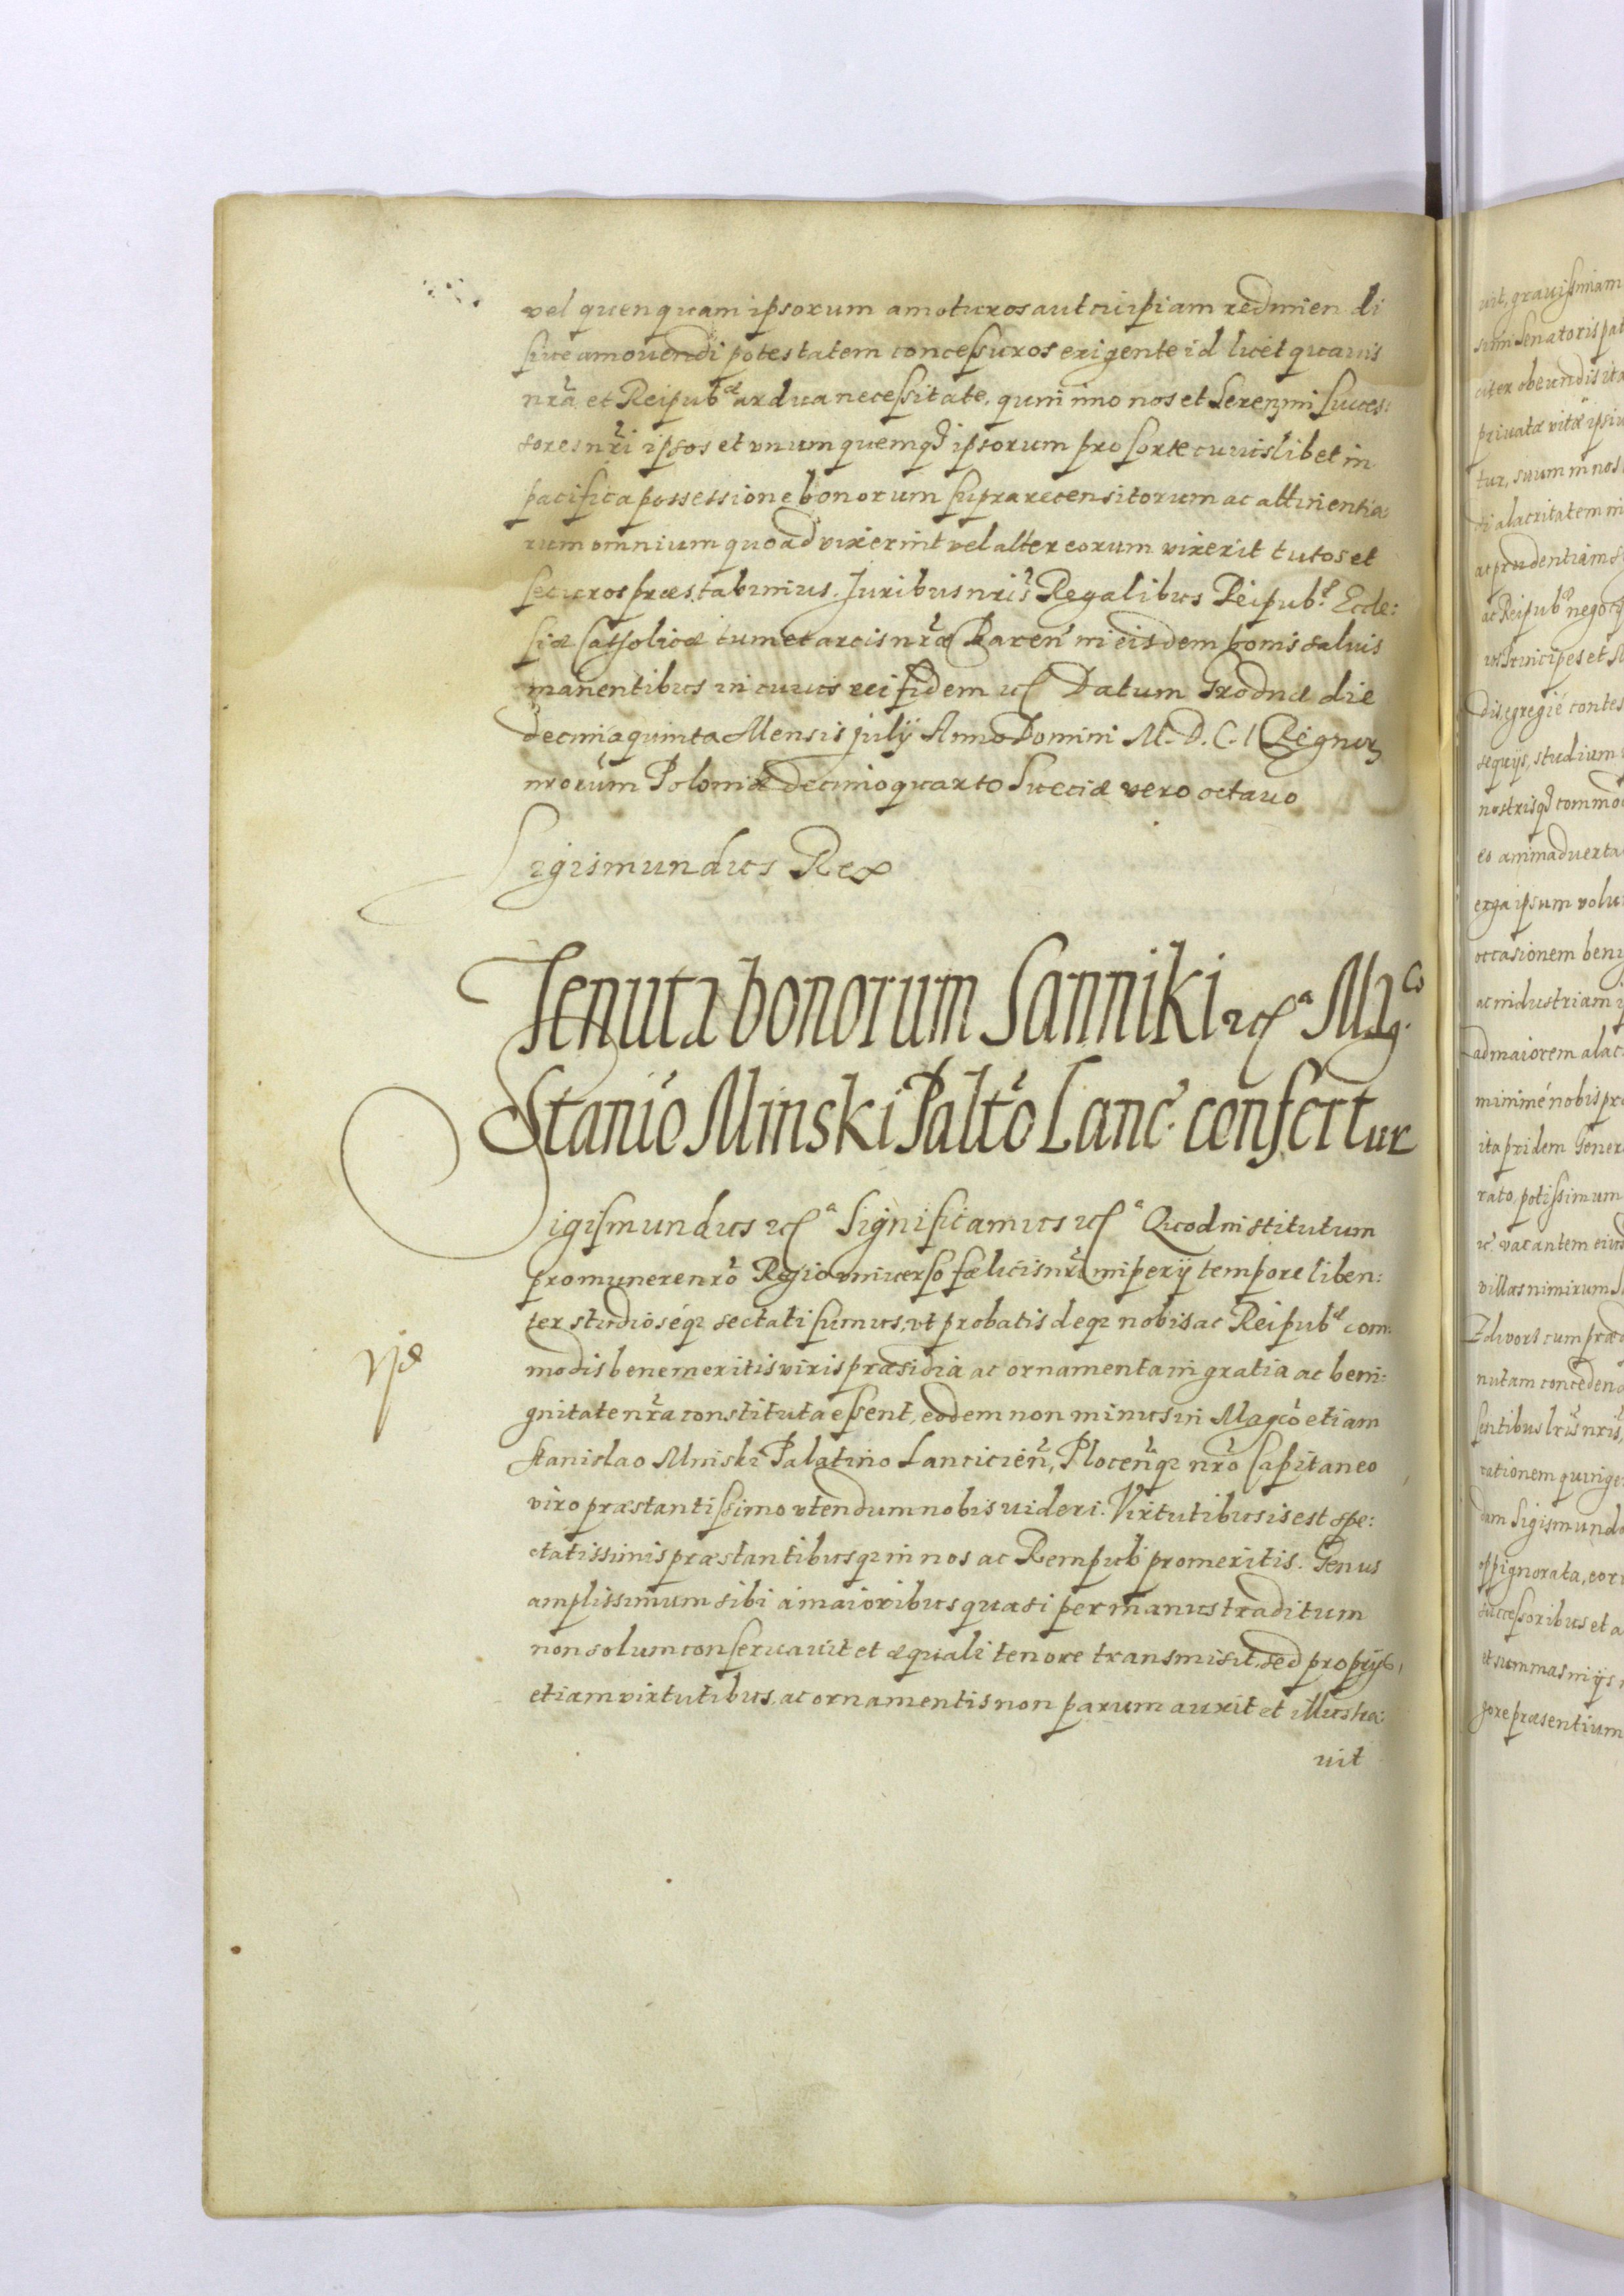 vel quenquam ipsorum amoturos aut cuipiam redimen di
siue amouendi potestatem concessuros exigente id licet quauis
nrã et Reipubᵉ ardua necessitate, quin imo nos et Serenmi succes:
sores nrĩ ipsos et vnumquemqȝ ipsorum pro sorte cuiuslibet in
pacifica possessione bonorum suprarecensitorum ac attinentia:
rum omnium quoad vixerint vel alter eorum vixerit tutos et
securos præstabimus. Juribus nris̃ Regalibus Reipubᵉ. Eccle:
siæ Catholicæ tum et arcis nrãe in eisdem bonis saluis
manentibus in cuius rei fidem etc Datum Grodnæ die
decima quinta Mensis July Anno Domini M. D. C. I Regnorȝ
nrorum Poloniæ decimo quarto Sueciæ vero octauo
Sigismundus Rex
Tenuta bonorum Sanniki etcᵃ Mag.ᶜᵒ
Stanio Minski Palto Lanc. confertur
Sigismundus etcᵃ Significamus etcᵃ Quod institutum
pro munere nrõ Regio vniuerso fælicis nrĩ imperij tempore liben:
ter studioséqȝ sectati sumus, vt probatis deqȝ nobis ac Reipubᵉ com:
modis benemeritis viris præsidia ac ornamenta in gratia ac beni:
gnitate nrã constituta essent, eodem non minus in Magcõ etiam
Stanislao Minski Palatino Lanciciẽn, Plocenqȝ nrõ Capitaneo
viro præstantissimo vtendum nobis uideri. Virtutibus is est spe:
ctatissimis præstantibusqȝ in nos ac Rempub promeritis. Genus
amplissimum sibi á maioribus quasi per manus traditum
non solum conseruauit et æquali tenore transmisit, sed proprijs,
etiam virtutibus, ac ornamentis non parum auxit et illustra:
uit
uit, grauissimam
citer obeundis ita
priuatæ vitæ ipsiu
tur, suum in nos
di alacritatem in
ac prudentiam
ac Reipubᵉ negotij
Principes et
dis, egregié contes
sequijs, studium
nostrisqȝ commod
eo animaduerta
erga ipsum volu
occasionem beni
ac industriam i
ad maiorem alac
minimé nobis pr
ita pridem Gener
rato, potissimum
vacantem eius
villas nimirum
Zdwors cum præd
nutam concedend
sentibus lris̃ nris̃
rationem quinge
dam Sigismundo
oppignorata, eor
successoribus et a
et summas in ijs
fore præsentium